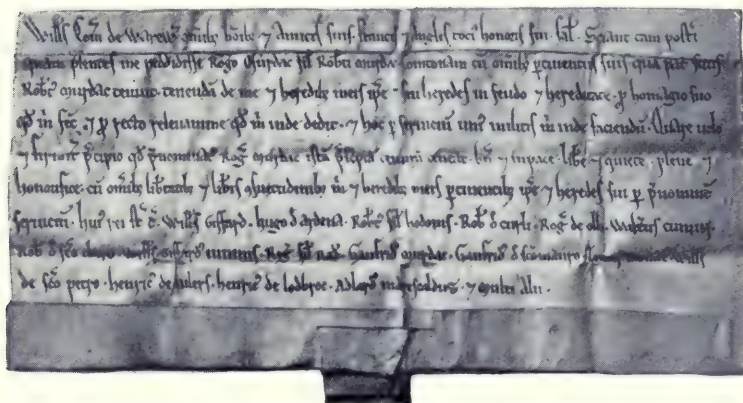 Wills Com̃ de Warewic̃ omib; hoib; ⁊ Amicis suis francis ⁊ Anglis toci honoris sui Sal̃. Sciant tam post̃i
quam p̃sentes me reddidisse Rog̃o Murdac fil̃ Rob̃ti murdac cum omib; ptinentiis suis quã pat̃
Rob̃ murdac tenuit. tenendã de me ⁊ heredib; meis ipse ⁊ sui heredes in feudo ⁊ hereditate. p homagio suo
qd̃ m̃ fec̃. ⁊ p recto relevamine qd̃ m̃ inde dedit. ⁊ hoc p servicium uni militis m̃ inde faciendũ. Quare volo
⁊ firmit̃ p̃cipio qd̃ p̃nominat Rog̃ murdac istã teneat. bñ ⁊ in pace. libe ⁊ quiete. plene ⁊
honorifice. cũ omib; libtatib; ⁊ libis c̃suetudinib; m̃ ⁊ heredib; meis ptinentib; ipse ⁊ heredes sui p p̃nominatũ
serviciũ. hui rei st̃ t̃. Wills Giffard. hugo d̃ Ardena. Rob̃t fil̃ hodonis. Rob̃ d̃ Curli. Rog̃ de olli. Walt̃us cumin.
Rob̃ d̃ Wills Giffard iuvenis. Rog̃ fil̃ Gaufrid murdac. Gaufrid d̃ Wills
de sc̃o petro. henric̃ de Aulers. henric̃ de lodbroc. Adlard marescaldus. ⁊ multi Alii.